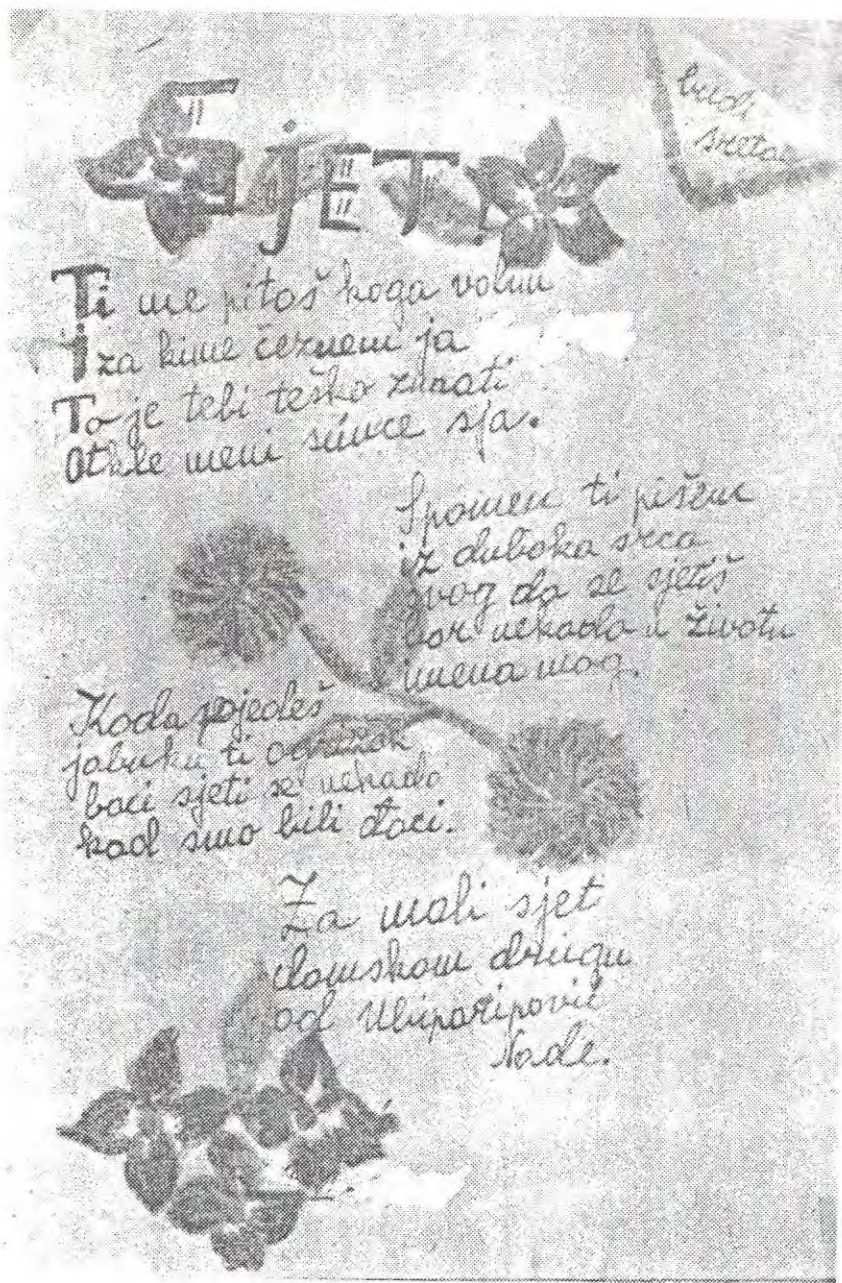 SjET
budi
sreta
Ti me pitaš koga volim
I za kime čeznem ja
To je tebi teško znati
Otkle meni sunce sja.
Spomen ti pišem
iz duboka srca
svog da se sjetiš
bar nekada u životu
imena mog.
Kada pojedeš
jabuku ti ogrizak
baci sjeti se nekada
kad smo bili đaci.
Za mali sjet
domskom drugu
od Ubiparipović
Nade.